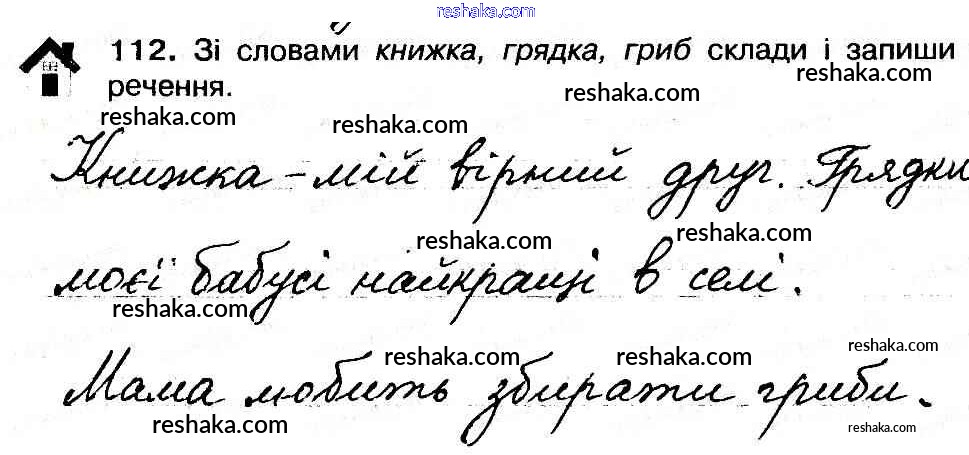 reshaka.com
112. Зі словами книжка, грядка, гриб склади і запиши
reshaka.com
речення.
reshaka.com
reshaka.com
reshaka.com
Книжка – мій вірний друг. Грядки
reshaka.com
reshaka.com
моєї бабусі найкращі в селі.
reshaka.com
reshaka.com
reshaka.com
reshaka.com
Мама любить збирати гриби.
reshaka.com
reshaka.com